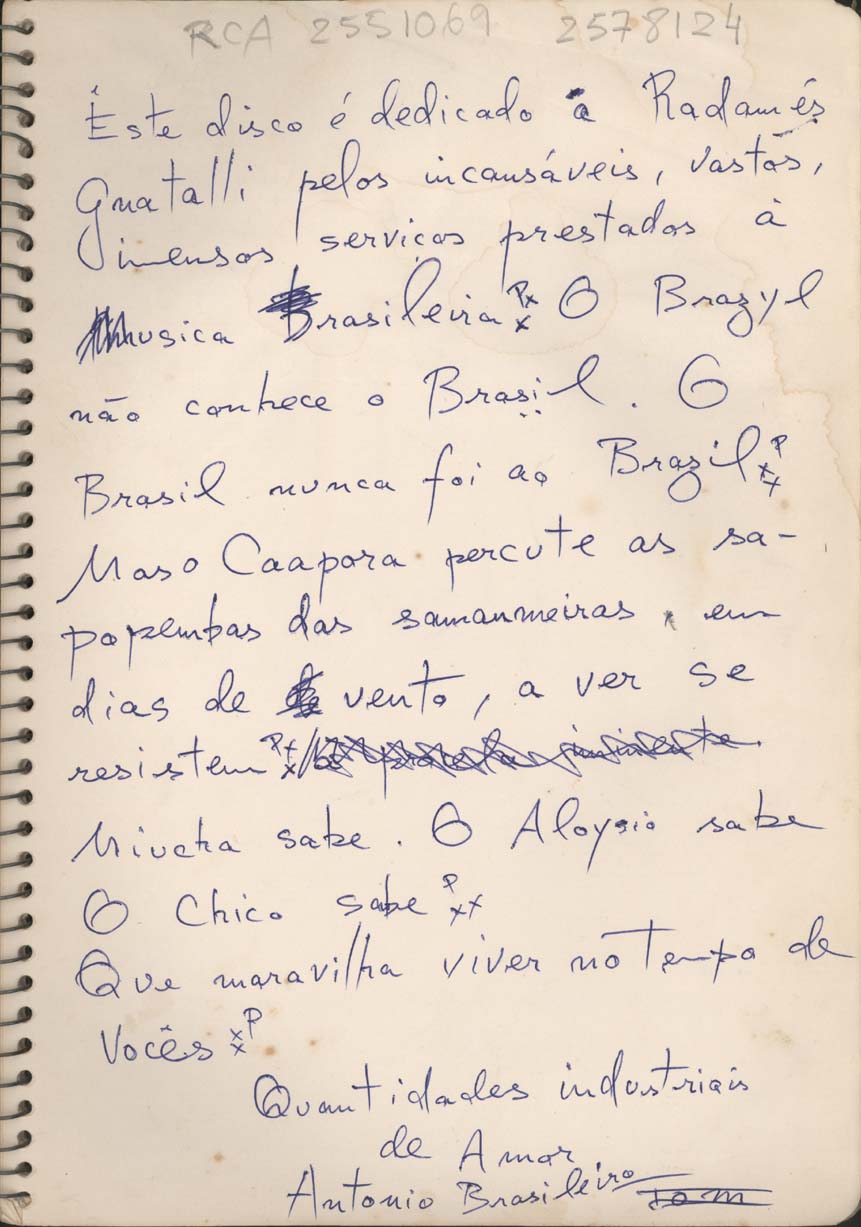 RCA 2551069 2578124
Êste disco é dedicado a Radamés
Gnatalli pelos incansáveis, vastos,
imensos serviços prestados à
Musica Brasileira. O Brazyl
não conhece o Brasil. O
Brasil nunca foi ao Brazil
Maso Caapora percute as sa-
popembas das samanmeiras, em
dias de vento, a ver se
resistem
Miucha sabe. O Aloysio sabe
O Chico sabe
Que maravilha viver no tempo de
Vocês
Quantidades industriais
de Amor
Antonio Brasileiro Tom